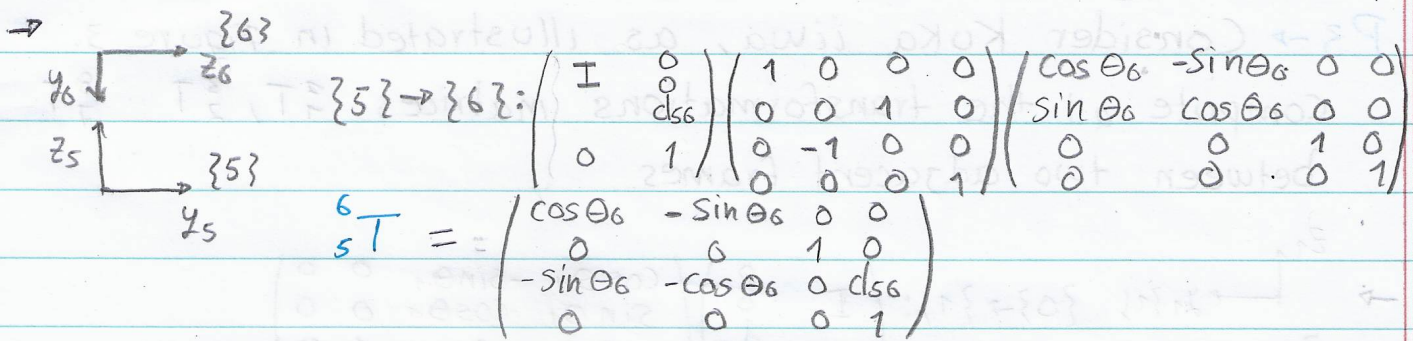 → {6}
z6
y6
{5}→{6}: ( I 0 0 d56 0 1 ) ( 1 0 0 0 0 0 1 0 0 -1 0 0 0 0 0 1 ) ( cos θ6 -sin θ6 0 0 sin θ6 cos θ6 0 0 0 0 1 0 0 0 0 1 )
z5
{5}
y5
6 5 T = ( cos θ6 - sin θ6 0 0
0 0 1 0
-sin θ6 -cos θ6 0 d56
0 0 0 1 )